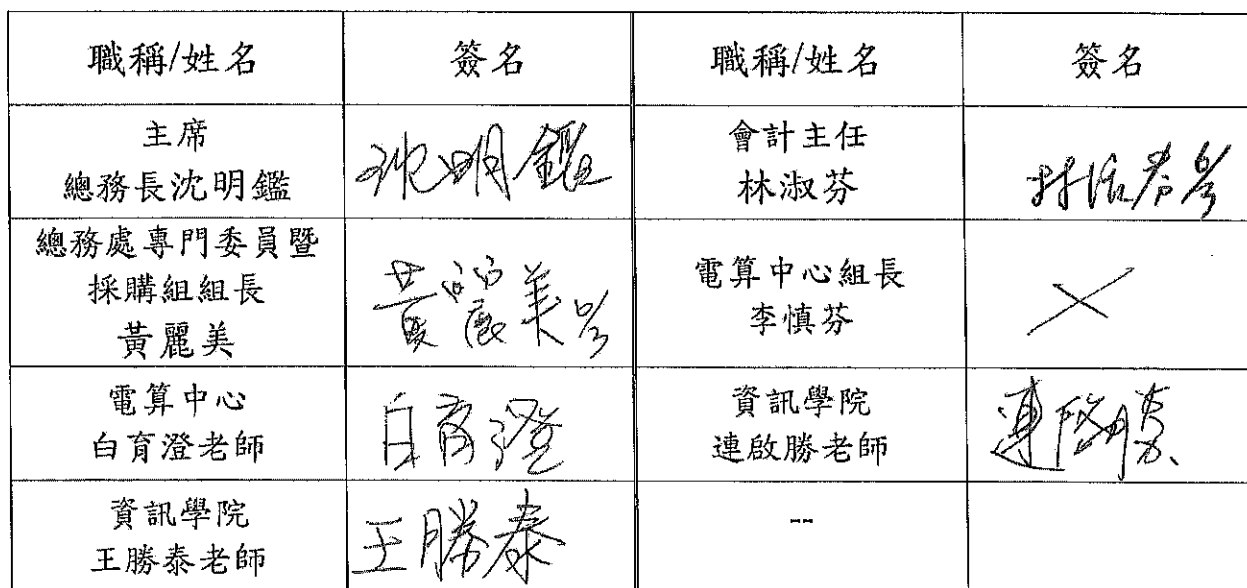 職稱/姓名 簽名 職稱/姓名 簽名
主席
總務長沈明鑑
沈明鑑
會計主任
林淑芬
林淑芬
總務處專門委員暨
採購組組長
黃麗美
黃麗美
電算中心組長
李慎芬
電算中心
白育澄老師
白育澄
資訊學院
連啟勝老師
連啟勝
資訊學院
王勝泰老師
王勝泰
--